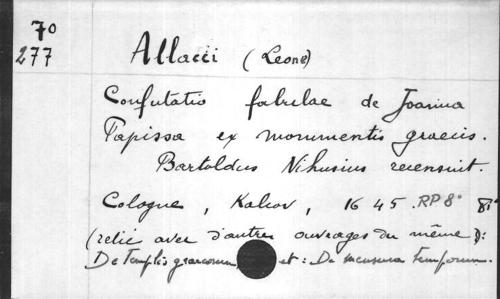 70
277
Allacci (Leone)
Confutatio fabulae de Joanna
Papissa ex monumentis graecis.
Bartoldus Nihusius recensuit.
Cologne, Kalcov, 1645. RP 8° 8°
(relié avec d'autres ouvrages du même):
De Templis graecorum et: De mensura temporum.